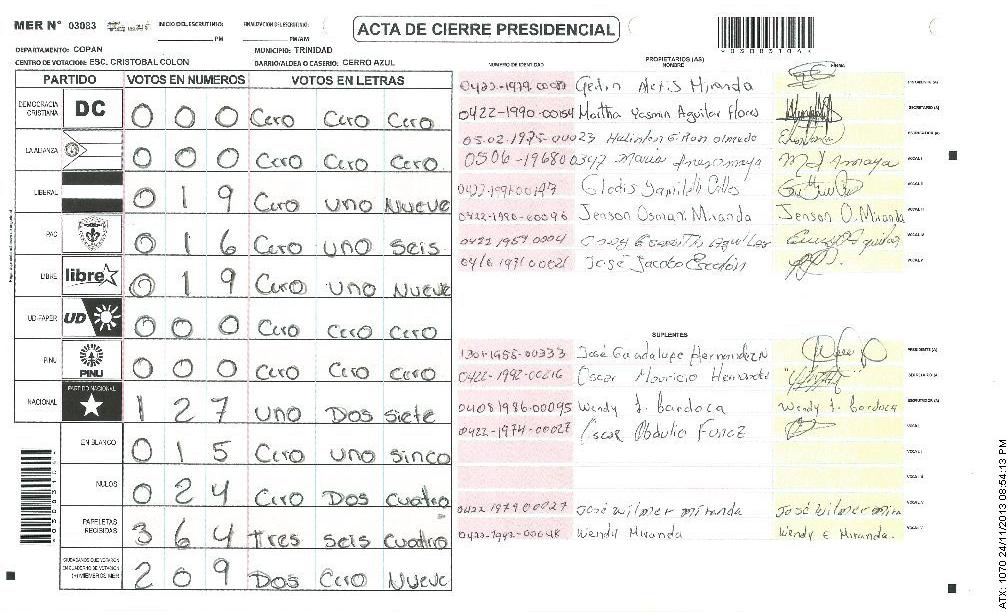 MER N° 03083 INICIO DEL ESCRUTINIO: PM FINALIZACION DEL ESCRUTINIO: PM/AM
ACTA DE CIERRE PRESIDENCIAL
DEPARTAMENTO: COPAN MUNICIPIO: TRINIDAD
CENTRO DE VOTACION: ESC. CRISTOBAL COLON BARRIO/ALDEA O CASERIO: CERRO AZUL
PARTIDO VOTOS EN NUMEROS VOTOS EN LETRAS
DEMOCRACIA CRISTIANA DC 0 0 0 Cero Cero Cero
LA ALIANZA 0 0 0 Cero Cero Cero
LIBERAL 0 1 9 Cero uno Nueve
PAC 0 1 6 Cero uno seis
LIBRE libre 0 1 9 Cero uno Nueve
UD-FAPER UD 0 0 0 Cero Cero Cero
PINU PINU 0 0 0 Cero Cero Cero
NACIONAL PARTIDO NACIONAL 1 2 7 uno Dos siete
EN BLANCO 0 1 5 Cero uno sinco
NULOS 0 2 4 Cero Dos cuatro
PAPELETAS RECIBIDAS 3 6 4 tres seis cuatro
CIUDADANOS QUE VOTARON EN CUADERNO DE VOTACION (+) MIEMBROS MER 2 0 9 Dos Cero Nueve
NUMERO DE IDENTIDAD PROPIETARIOS (AS) FIRMA
Miranda PRESIDENTE (A)
0422-1990-00154 Martha Yasmin Aguilar Flores SECRETARIO (A)
05.02.1975-00023 ESCRUTADOR (A)
VOCAL I
Gladis VOCAL II
0422-1990-00096 Jenson Osman Miranda Jenson O. Miranda VOCAL III
VOCAL IV
José Jacobo Escalón VOCAL V
SUPLENTES
1301-1955-00333 José Guadalupe Hernandez N PRESIDENTE (A)
0422-1992-00216 Oscar Mauricio Hernandez SECRETARIO (A)
0408 1986-00095 Wendy J. Bardoca Wendy J. Bardoca ESCRUTADOR (A)
0422-1974-00027 Oscar Obdulio Funez VOCAL I
VOCAL II
VOCAL III
0422 1979 00027 José Wilmer Miranda José Wilmer VOCAL IV
Wendy Miranda Wendy E Miranda. VOCAL V
ATX: 1070 24/11/2013 08:54:13 PM